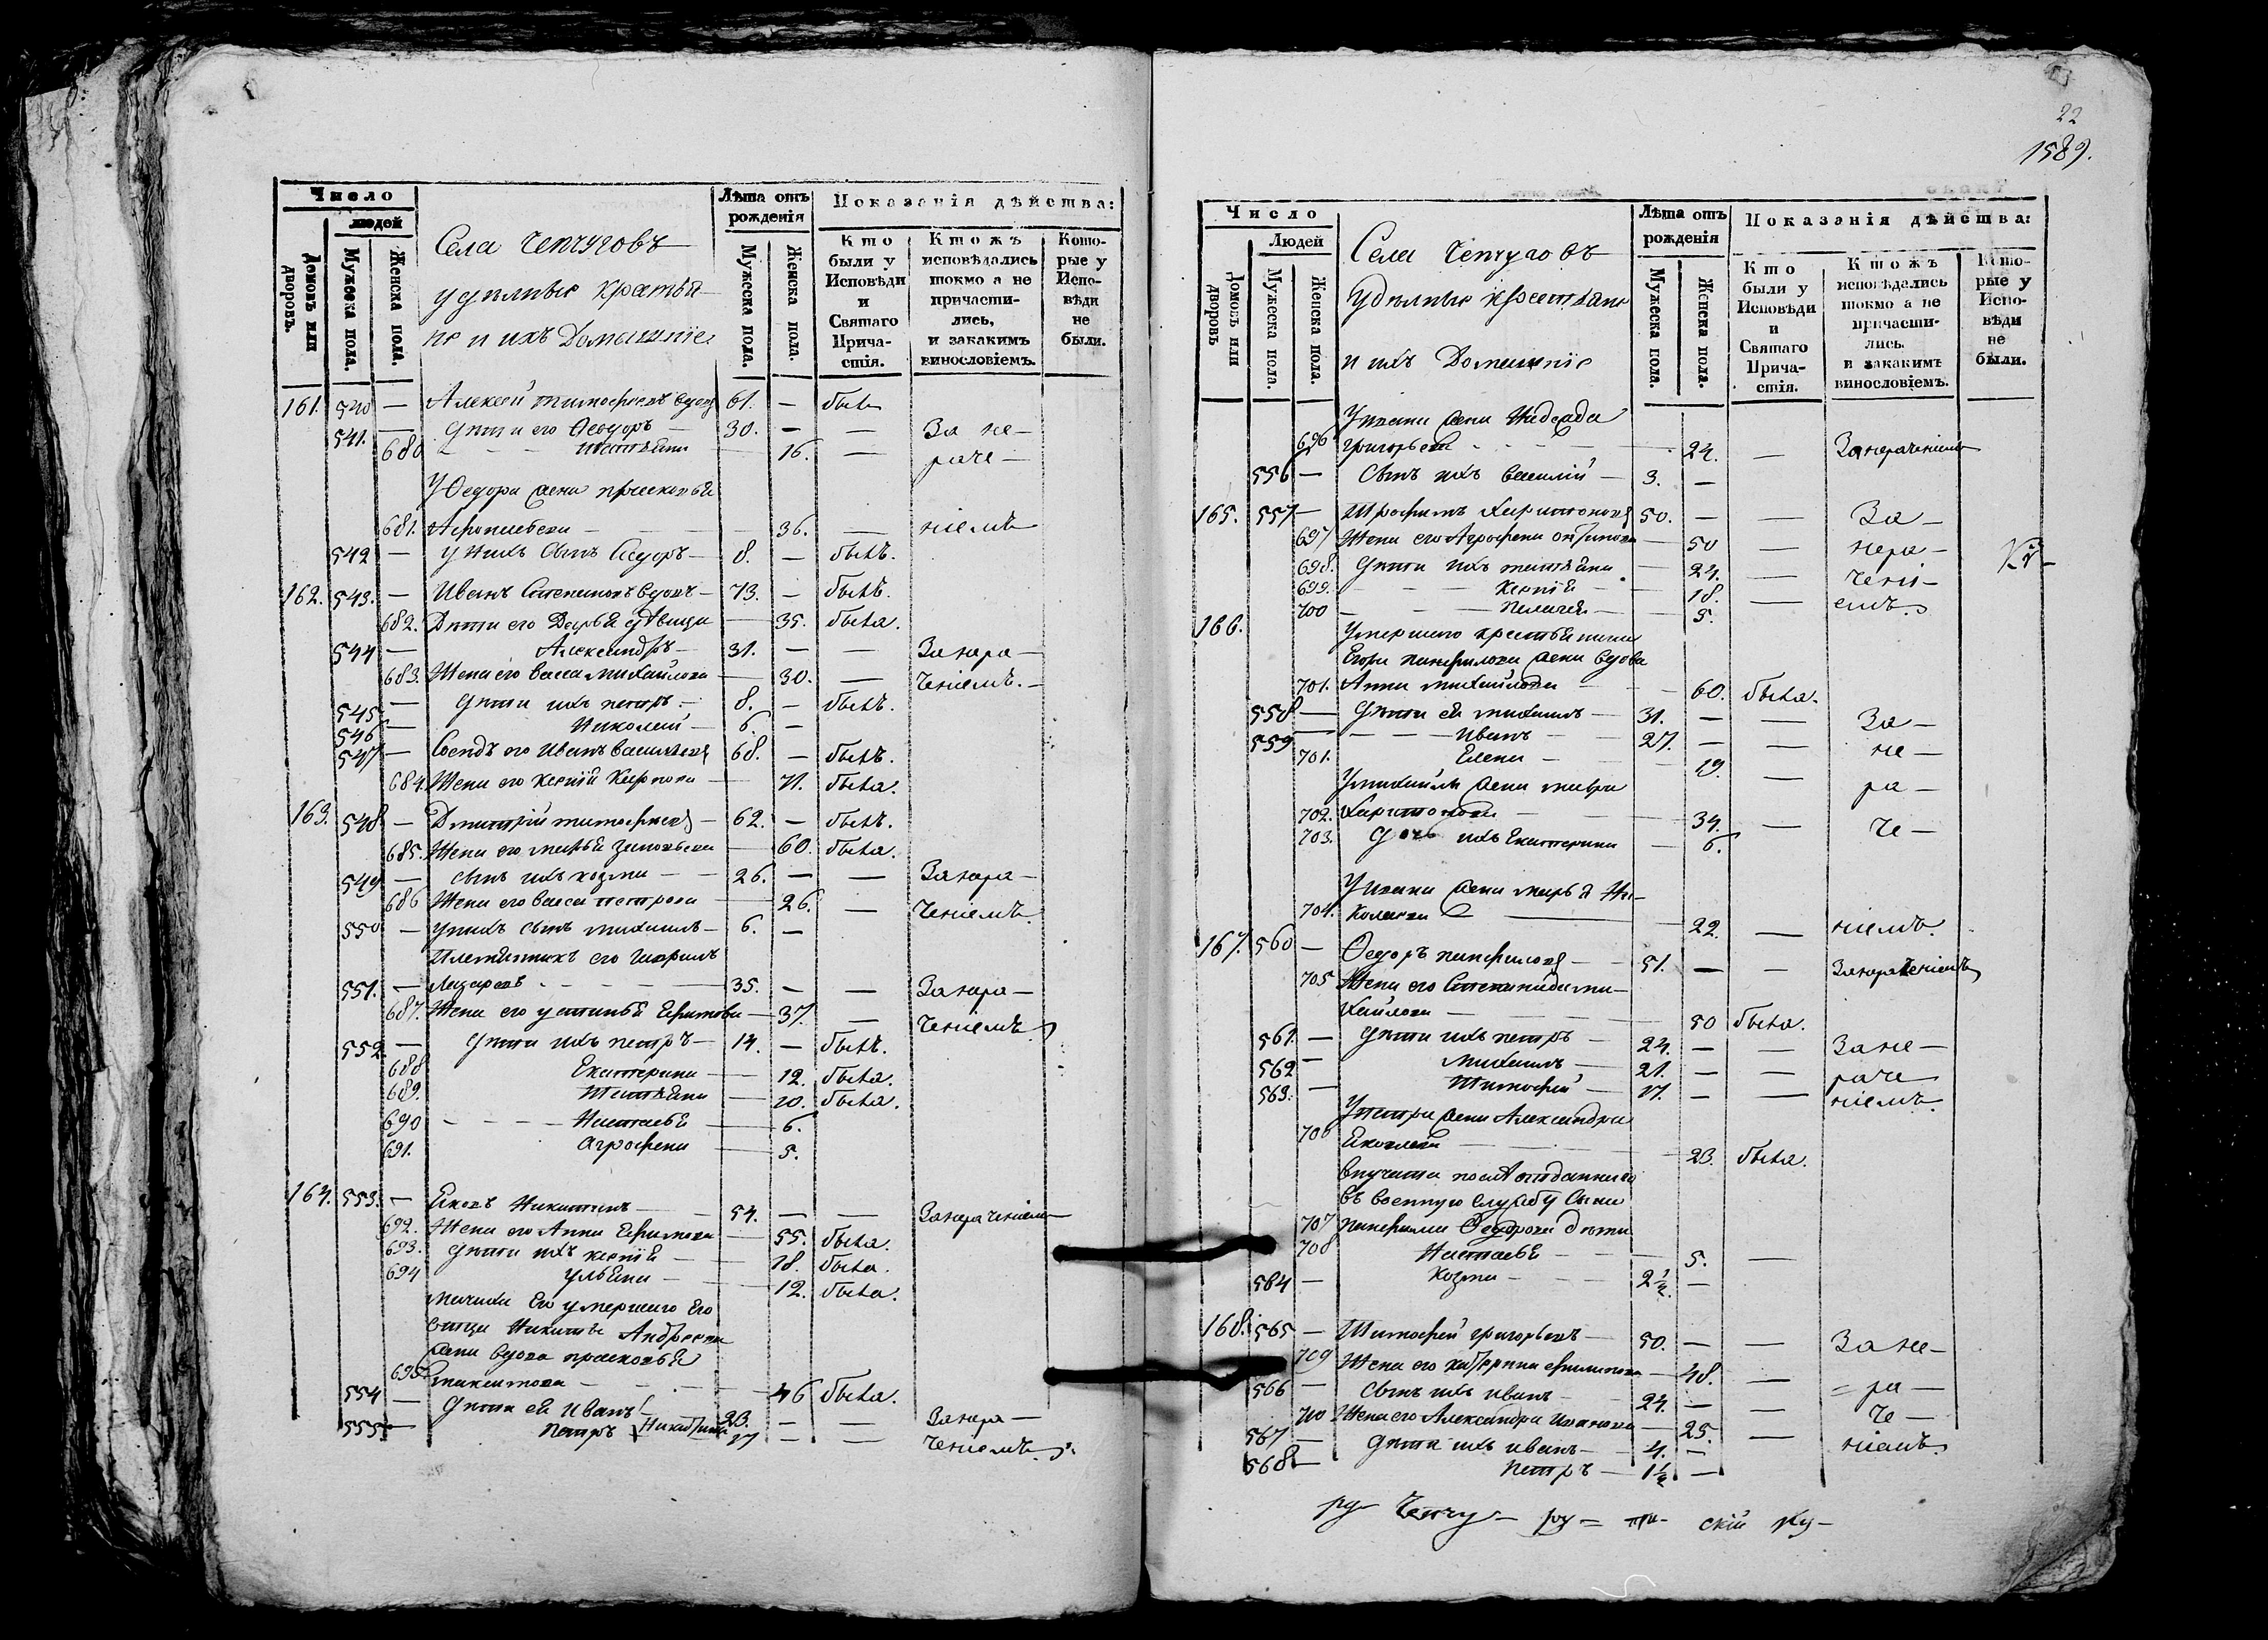 Число
людей
Домовъ или дворовъ.
Мужеска пола.
Женска пола.
Села Чепчуговъ
удѣльные крестья-
не и ихъ Домашніе
Лѣта отъ рожденія
Мужеска пола.
Женска пола.
Показанія дѣйства:
Кто были у Исповѣди и Святаго Причастія.
Ктожъ исповѣдались токмо а не причасти-лись, и закакимъ винословіемъ.
Кото-рые у Испо-вѣди не были.
161. 540 — Алексей тимофеевъ вдовъ 61. — былъ
541. — Дѣти его Ѳеодоръ — 30. — — За не—
680 — — — татьяна — 16. — раче—
У Ѳедора жена прасковья
681. — 36. — ніемъ
542 — У нихъ сынъ Ѳедоръ — 8. — былъ.
162. 543. — Иванъ Степановъ вдовъ — 73. — былъ.
682. Дѣти его Дарья дѣвица — 35. была.
544 — Александръ — 31. — — Занера—
683. Жена его васса михайлова — 30. — ченіемъ.—
545 — Дѣти ихъ петръ — 8. — былъ.
546 — Николай — 6. —
547 — Сосѣдъ его Иванъ васильевъ 68. — былъ.
684. Жена его Ксенія Карпова — 71. была.
163. 548 — Дмитрій тимофеевъ — 62. — былъ.
685. Жена его марья — 60. была.
549 — сынъ ихъ козма — — 26. — — Занера—
686 Жена его васса петрова — 26. — ченіемъ.
550 — У нихъ сынъ михаилъ — 6. —
Племянникъ его Гаврилъ
551. — Лазаревъ — — — 35. — — Занера—
687. Жена его устинья Ефимова — 37. — ченіемъ
552. — Дѣти ихъ петръ — 14. — былъ.
688 Екатерина — 12. была.
689. Татьяна — 10. была.
690 — — — Настасья — 6.
691. Агрофена — 5.
164. 553. — Яковъ Никитинъ — 54. — — Занераченіем—
692. Жена его Анна Ефимова — 55. была.
693. Дѣти ихъ ксенія — 18. была.
694 Ульяна — 12. была.
мачиха Его умершаго Его
отца Никиты Андреева
жена вдова прасковья
695 максимова — — — 46 была.
554 — Дѣти ея Иванъ 23. — — Занера—
555 — Петръ Никитины 17 — — ченіемъ.
22
1589.
Число
Людей
Домовъ или дворовъ
Мужеска пола.
Женска пола.
Села Чепчуговъ
Удѣльные крестьяне
и ихъ Домашніе
Лѣта отъ рожденія
Мужеска пола.
Женска пола.
Показанія дѣйства:
Кто были у Исповѣди и Святаго Прича-стія.
Ктожъ исповѣдались токмо а не причасти-лись. и закакимъ винословіемъ.
Кото-рые у Испо-вѣди не были.
У жена
696 григорьева — — — 24. — Занераченіемъ
556 — Сынъ ихъ василій — 3. —
165. 557 — Трофимъ Харитоновъ 50. — — За—
697 Жена его Агрофена — 50 — нера—
698. Дѣти ихъ татьяна — 24. — чені—
699. — — — Ксенія — 18. — емъ.
700 — — — Пелагея — 5.
166. Умершаго крестьянина
Егора панфилова жена вдова
701. Анна михайлова — — 60. была.
558 — Дѣти ея михаилъ — 31. — — За—
559 — — — — Иванъ — 27. — — не—
701. Елена — 19. — ра—
У михайла жена мавра
702. Харитонова — — 34. — че—
703. Дочь ихъ Екатерина — 6.
У ивана жена марья Ни-
704. колаева — 22. — ніемъ.
167. 560 — Ѳедоръ панфиловъ — 51. — — Занераченіемъ
705 Жена его Степанида ми-
хайлова — — — 50 была.
561. — Дѣти ихъ петръ — 24. — — Зане—
562 — михаилъ — 21. — — раче
563. — Тимофей — 17. — — ніемъ.
У петра жена Александра
706 Яковлева — — 23. была.
въ военную службу сына
707 панфила Ѳедорова дѣти
708 Настасья — — — 5. —
564 — Козма — — 2½. —
168. 565 — Тимофей григорьевъ — 50. — — Зане—
709 Жена его катерина — 48. — = ра—
566 — сынъ ихъ иванъ — 24. — — че—
710 Жена его Александра Иванова — 25. — ніемъ.
567 — Дѣти ихъ иванъ — 4. —
568 — Петръ — 1½ —
ру— Чепчу— ру= скій ру—